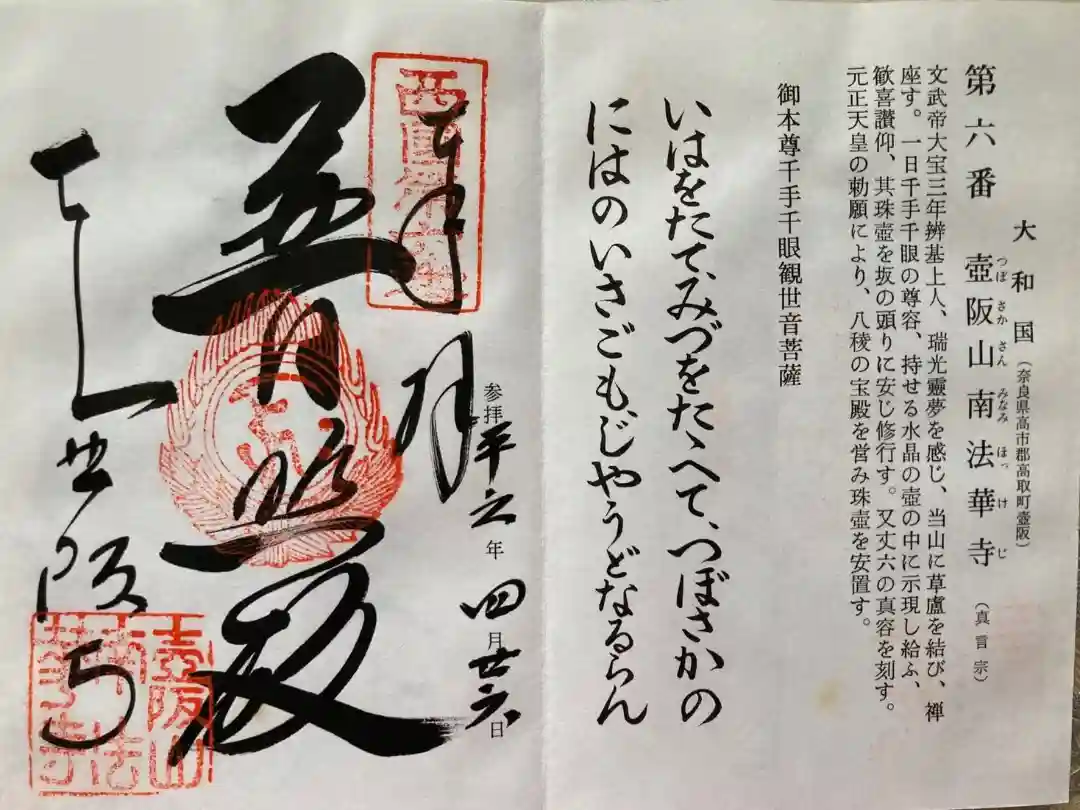 大和国(奈良県高市郡高取町壷阪)
第六番 壺阪山南法華寺(真言宗)
つぼさかさんみなみほっけじ
文武帝大宝三年辨基上人、瑞光靈夢を感じ、当山に草盧を結び、禅
座す。一日千手千眼の尊容、持せる水晶の壺の中に示現し給ふ、
歓喜讃仰、其珠壺を坂の頭りに安じ修行す。又丈六の真容を刻す。
元正天皇の勅願により、八稜の宝殿を営み珠壺を安置す。
御本尊千手千眼観世音菩薩
いはをたて、みづをたゝへて、つぼさかの
にはのいさごも、じやうどなるらん
奉拝
参拝平之年四月廿六日
普照殿
壺阪寺
壺阪山
南法
華寺